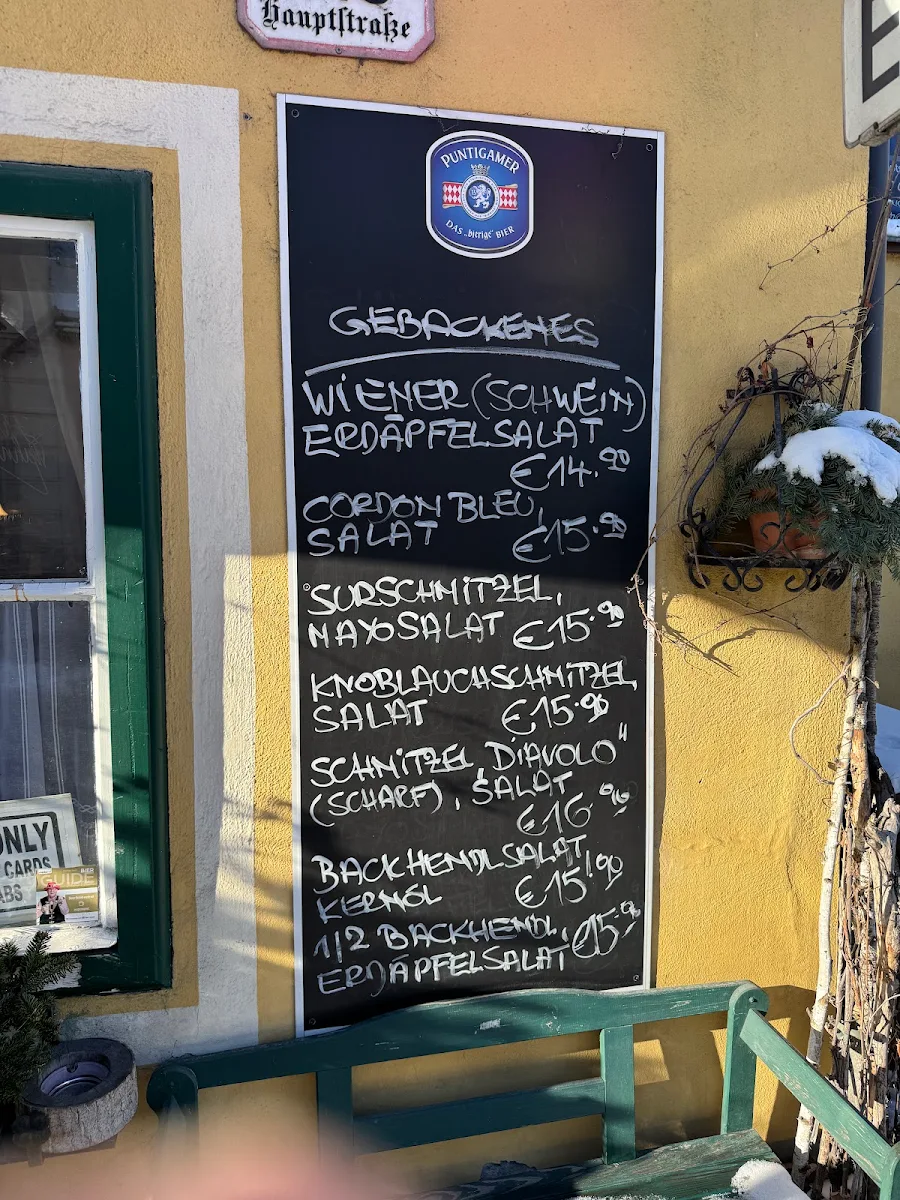 Hauptſtraße
PUNTIGAMER
DAS „bierige“ BIER
GEBACKENES
WIENER (SCHWEIN)
ERDÄPFELSALAT
€14.90
CORDON BLEU,
SALAT €15.90
SURSCHNITZEL,
MAYOSALAT €15.90
KNOBLAUCHSCHNITZEL,
SALAT €15.90
SCHNITZEL „DIAVOLO“
(SCHARF), SALAT
€16.90
BACKHENDLSALAT,
KERNÖL €15.90
1/2 BACKHENDL, €15.90
ERDÄPFELSALAT
ONLY
CARDS
BIER
GUIDE
E